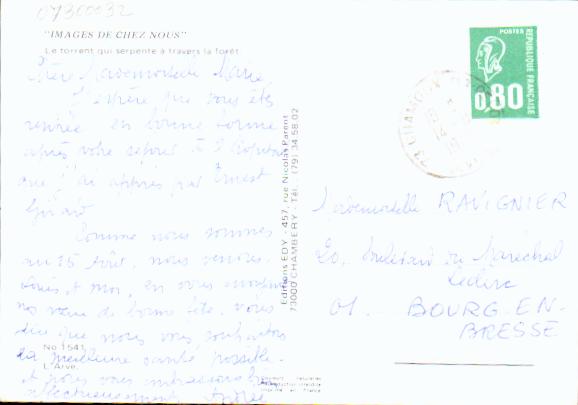 07300032
"IMAGES DE CHEZ NOUS"
Le torrent qui serpente à travers la forêt
Chère Mademoiselle Marie
J'espère que vous êtes
rentrée en bonne forme
après votre séjour à l'hôpital
que j'ai appris par Ernest
Girard
Comme nous sommes
au 15 Août, nous venons,
et moi, en vous
nos vœux de bonne fête. Vous
dire que nous vous souhaitons
la meilleure santé possible.
et nous vous embrassons bien
affectueusement Andrée
No 1541
L'Arve.
Editions EDY - 457, rue Nicolas Parent
73000 CHAMBERY - Tél. (79) 34.58.02
POSTES
REPUBLIQUE FRANÇAISE
0,80
Mademoiselle RAVIGNIER
20, boulevard du Maréchal
Leclerc
01. BOURG-EN-
BRESSE